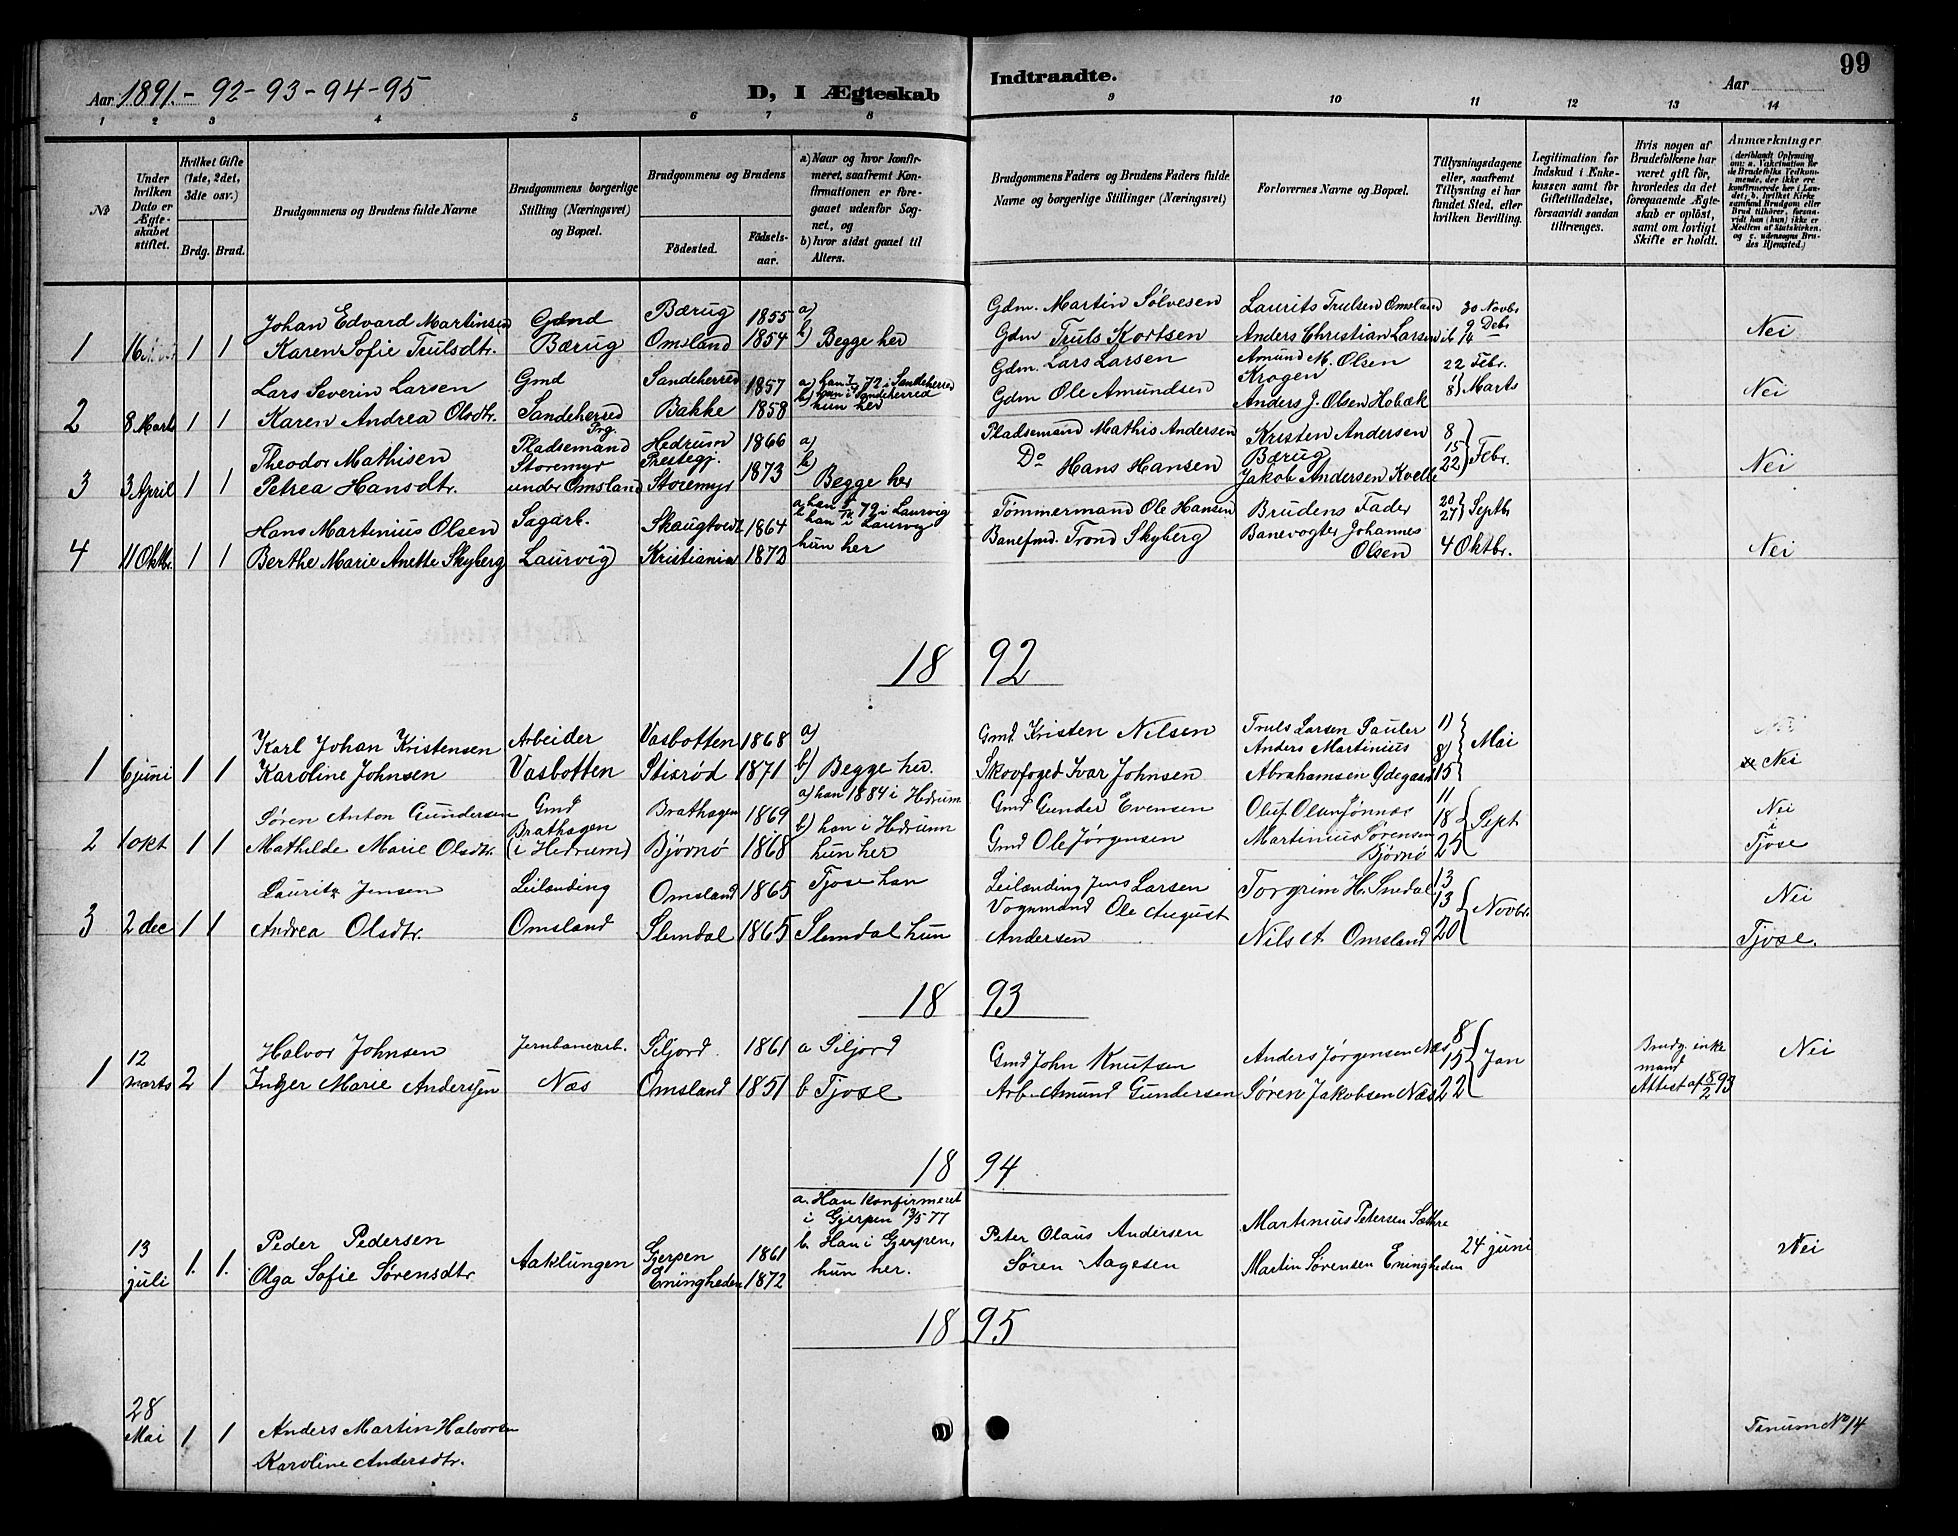 99
Aar 1891.- 92 - 93 - 94 - 95
D, I Ægteskab
Indtraadte.
Aar
1 2 3 4 5 6 7 8 9 10 11 12 13 14
No
Under hvilken Dato er Ægteskabet stiftet.
Hvilket Gifte (1ste, 2det, 3die osv.)
Brdg. Brud.
Brudgommens og Brudens fulde Navne
Brudgommens borgerlige Stilling (Næringsvei) og Bopæl.
Brudgommens og Brudens
Födested. Födselsaar.
a) Naar og hvor konfirmeret, saafremt Konfirmationen er foregaaet udenfor Sognet, og
b) hvor sidst gaaet til Alters.
Brudgommens Faders og Brudens Faders fulde Navne og borgerlige Stillinger (Næringsvei)
Forlovernes Navne og Bopæl.
Tillysningsdagene eller, saafremt Tillysning ei har fundet Sted, efter hvilken Bevilling.
Legitimation for Indskud i Enkekassen samt for Giftetilladelse, forsaavidt saadan tiltrænges.
Hvis nogen af Brudefolkene har været gift för, hvorledes da det foregaaende Ægteskab er oplöst, samt om lovligt Skifte er holdt.
Anmærkninger
(deriblandt Oplysning om: a. Vakcination for de Brudefolks Vedkommende, der ikke ere konfirmerede her i Landet, b. hvilket Kirkesamfund Brudgom eller Brud tilhörer, forsaavidt han (hun) ikke er Medlem af Statskirken, og c. udensogns Brudes Hjemsted.)
Johan Edvard Martinsen Gdmd Bærug 1855 a) Gdm. Martin Sölvesen Laurits Trulsen Omsland 30 Novbr
1 16 1 1 Karen Sofie Trulsdtr. Bærug Omsland 1854 b) Begge her Gdm Truls Kortsen Anders Christian Larsen ib 9 14 Debr Nei
Lars Severin Larsen Gmd Sandeherred 1857 a) han 72 i Sandeherred b) han i Sandeherred Gdm. Lars Larsen Amund M. Olsen Krogen 22 Febr.
2 8 Marts 1 1 Karen Andrea Olsdtr. Sandeherred Bakke 1858 hun her Gdm Ole Amundsen Anders J. Olsen Holbæk 1 8 } Marts Nei
Theodor Mathisen Pladsemand Storemyr Hedrum Prestegj. 1866 a) Pladsemand Mathis Andersen Kristen Andersen Bærug 8 15
3 3 April 1 1 Petrea Hansdtr. under Omsland Storemyr 1873 b) Begge her Do Hans Hansen Jakob Andersen Kvelle 22 } Febr. Nei
Hans Martinius Olsen Sagarb. Skaugtvedt 1864 a han 72 i Laurvig han i Laurvig Tömmermand Ole Hansen Brudens Fader 20 27 } Septbr
4 11 Oktbr. 1 1 Berthe Marie Anette Skyberg Laurvig Kristiania 1872 hun her Banefmd. Trond Skyberg Banevogter Johannes Olsen 4 Oktbr. Nei
18 92
Karl Johan Kristensen Arbeider Vasbotten 1868 a) Gmd. Kristen Nilsen Truls Larsen Pauler Anders Martinius 1) 8)
1 6 juni 1 1 Karoline Johnsen Vasbotten Stisröd 1871 b) Begge her. Skovfoged Ivar Johnsen Abrahamsen Ødegaard 15 } Mai Nei
Sören Anton Gundersen Gmd Brathagen Brathagen 1869 a) han 1884 i Hedrum Gmd Gunder Evensen Oluf Olsen Jönnæs 11 18
2 1 okt 1 1 Mathilde Marie Olsdtr. (i Hedrum) Björnö 1868 b) han i Hedrum hun her Gmd Ole Jörgensen Martinius Sörensen Björnö 25 } Sept Nei Tjose
Lauritz Jensen Leilænding Omsland 1865 Tjose han Leilænding Jens Larsen Torgrim H. Snedal 13 13
3 2 dec 1 1 Andrea Olsdtr. Omsland Slemdal 1865 Slemdal hun Vognmand Ole August Andersen Nils A Omsland 20 } Novbr. Nei Tjose.
18 93
Halvor Johnsen Jernbanearb. Siljord. 1861 a Siljord Gmd John Knutsen Anders Jörgensen Næs 8 15
1 12 marts 2 1 Inger Marie Anderssen Næs Omsland 1851 b Tjose Arb. Amund Gundersen Sören Jakobsen Næs 22 } Jan Brudg. inke mand Attest af 8/2 93 Nei
18 94
a. Han konfirmeret i Gjerpen 13/5 77
Peder Pedersen Aaklungen Gjerpen 1861 b. Han i Gjerpen, Peter Olaus Andersen Martinius Petersen Sæthre 24 juni Nei
13 juli 1. 1. Olga Sofie Sörensdtr. Eningheden 1872 hun her. Sören Aagesen Martin Sörensen Eningheden
18 95
28 Mai 1 1 Anders Martin Halvorsen Tanum No 14
Karoline Andersdtr.